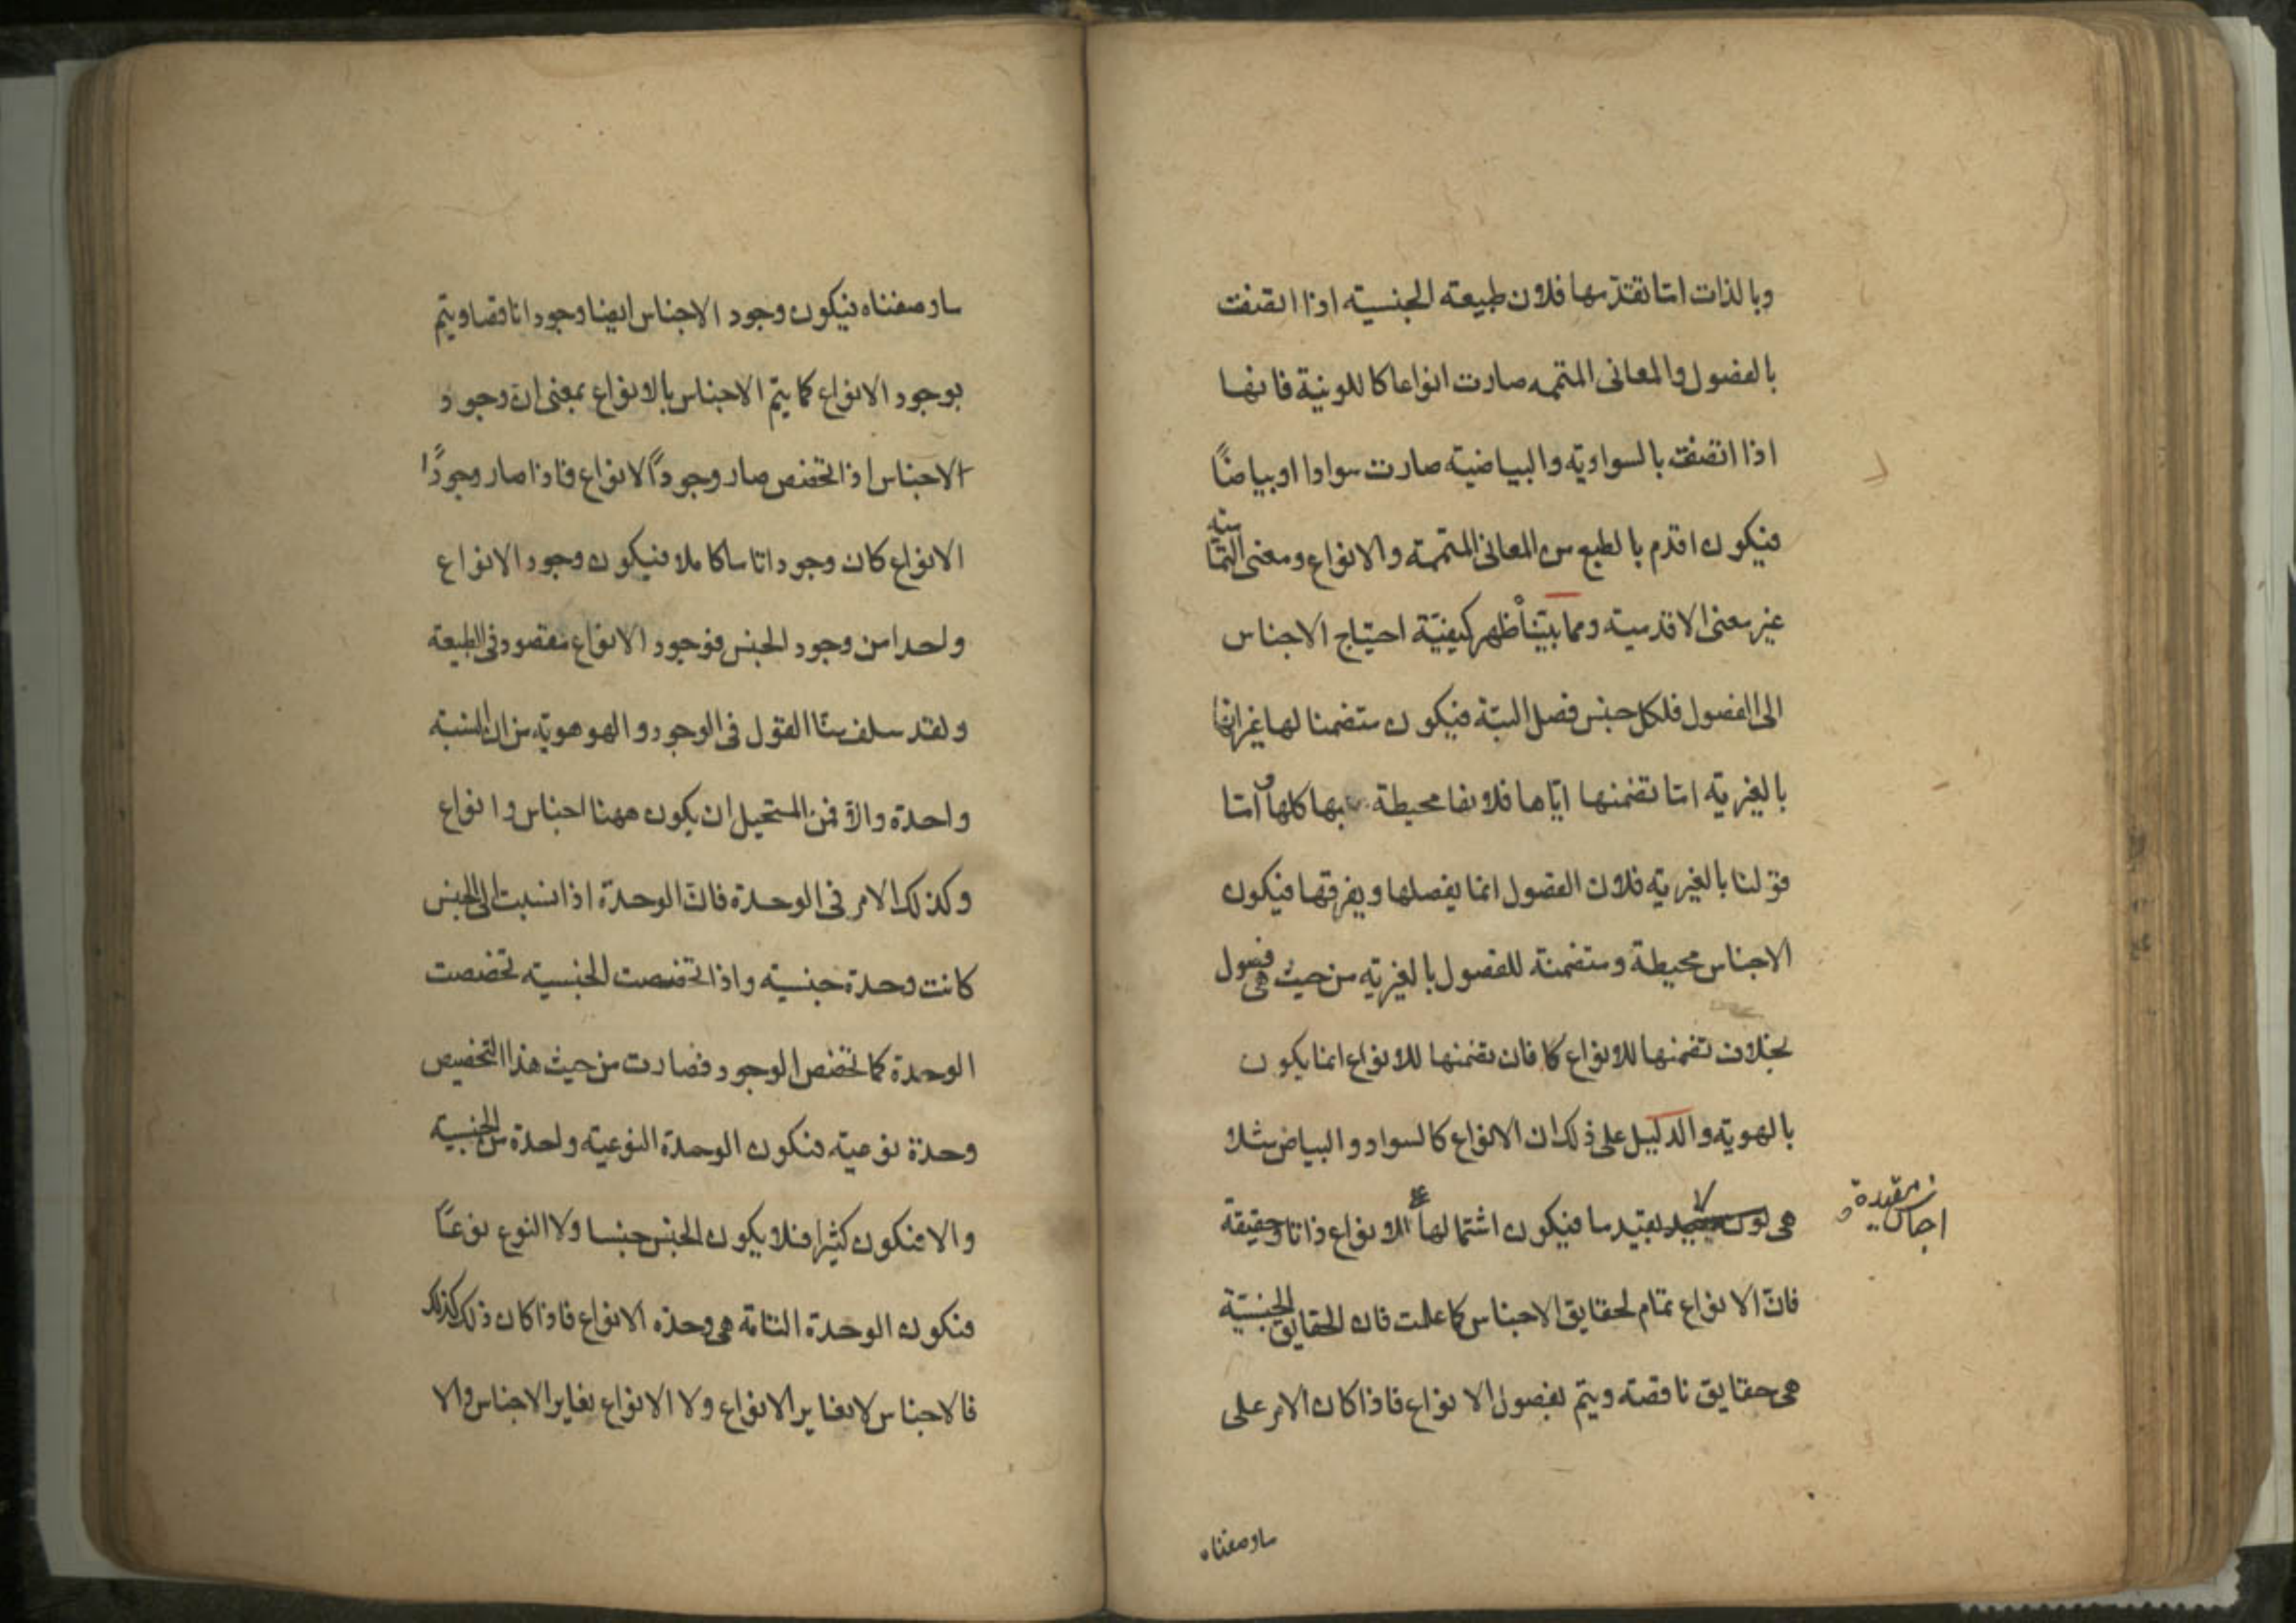 وبالذات اما تقدمها فلان طبيعة الجنسية اذا اتصفت
بالفصول والمعانى المتممه صارت انواعا كاللونية فانها
اذا اتصفت بالسوادية والبياضية صارت سوادا او بياضًا
فيكون اقدم بالطبع من المعانى المتممة والانواع ومعنى التمامية
غير معنى الاقدمية ومما بيّنا ظهر كيفيّة احتياج الاجناس
الى الفصول فلكل جنس فصل البتة فيكون متضمنا لها غير انها
بالغيرية اما تضمنها اياها فلانها محيطة بها كلها و اما
قولنا بالغيرية فلان الفصول انما يفصلها ويفرقها فيكون
الاجناس محيطة ومتضمنة للفصول بالغيرية من حيث هى فصول
بخلاف تضمنها للانواع فان تضمنها للانواع انما يكون
بالهوية والدليل على ذلك ان الانواع كالسواد والبياض مثلا
هى لون بقيد ما فيكون اشتمالها الانواع ذاتا وحقيقة
مقيدة
فان الانواع تمام لحقايق الاجناس كما علمت فان الحقايق الجنسية
هى حقايق ناقصة ويتم بفصول الانواع فاذا كان الامر على
ما وصفناه
ما وصفناه فيكون وجود الاجناس ايضا وجودا ناقصا ويتم
بوجود الانواع كما يتم الاجناس بالانواع بمعنى ان وجود
الاجناس اذا تخصص صار وجودًا لانواع فاذا صار وجودًا
الانواع كان وجودا تاما كاملا فيكون وجود الانواع
واحدا من وجود الجنس فوجود الانواع مقصود فى الطبيعة
ولقد سلف منا القول فى الوجود والهو هوية من ان النسبة
واحدة والا فمن المستحيل ان يكون ههنا اجناس وانواع
وكذلك الامر فى الوحدة فان الوحدة اذا نسبت الى الجنس
كانت وحدة جنسية واذا تخصصت الجنسية تخصصت
الوحدة كما تخصص الوجود فصارت من حيث هذا التخصيص
وحدة نوعية فتكون الوحدة النوعية واحدة من الجنسية
والا فتكون كثيرا فلا يكون الجنس جنسا ولا النوع نوعًا
فتكون الوحدة التامة هى وحدة الانواع فاذا كان ذلك كذلك
فالاجناس لا تغاير الانواع ولا الانواع تغاير الاجناس والا